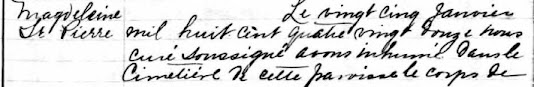 Magdeleine Le vingt cinq Janvier
St Pierre mil huit cent quatre vingt douze nous
curé soussigné avons inhumé dans le
Cimetière de cette paroisse le corps de